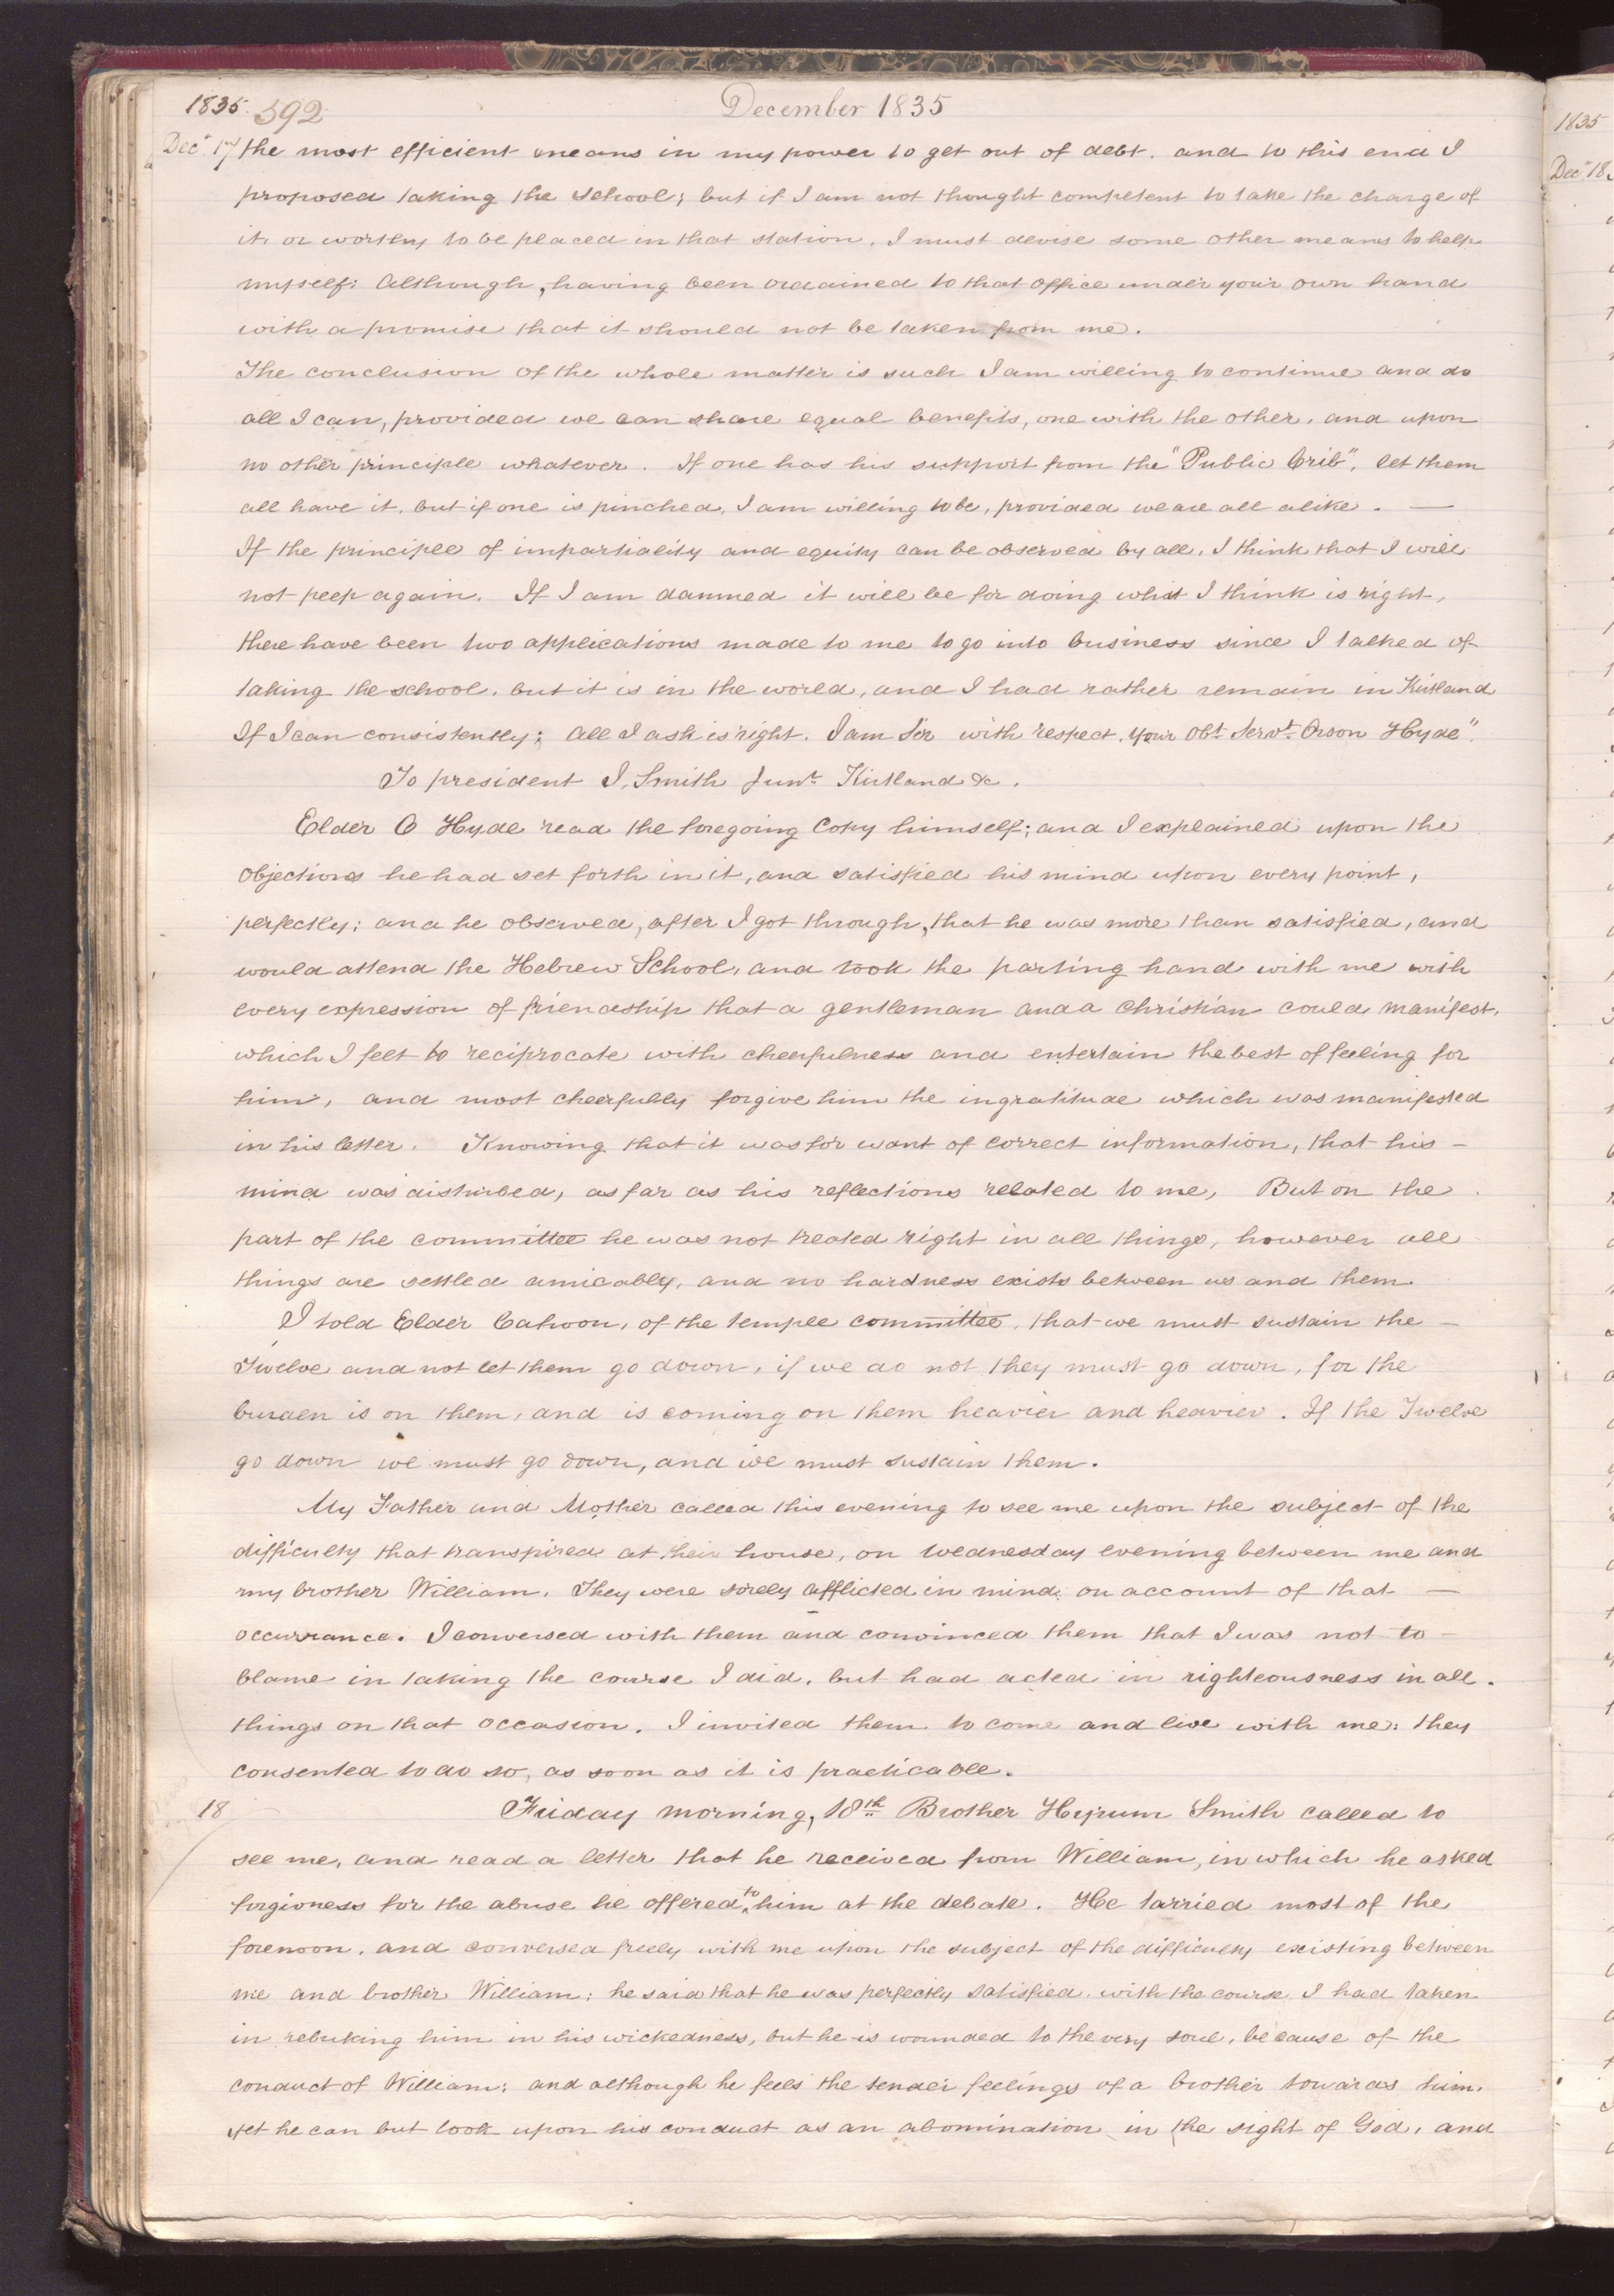 1835. 592 December 1835
Decr. 17 the most efficient means in my power to get out of debt. and to this end I
proposed taking the school; but if I am not thought competent to take the charge of
it, or worthy to be placed in that station, I must devise some other means to help
myself: Although, having been ordained to that office under your own hand
with a promise that it should not be taken from me.
The conclusion of the whole matter is such I am willing to continue and do
all I can, provided we can share equal benefits, one with the other, and upon
no other principle whatever. If one has his support from the "Public Crib", let them
all have it. but if one is pinched, I am willing to be, provided we are all alike. —
If the principle of impartiality and equity can be observed by all, I think that I will
not peep again. If I am damned it will be for doing what I think is right,
there have been two applications made to me to go into business since I talked of
taking the school, but it is in the world, and I had rather remain in Kirtland
If I can consistently; All I ask is right. I am Sir with respect. Your Obt. Servt. Orson Hyde".
To president J. Smith Junr. Kirtland &c.
Elder O Hyde read the foregoing Copy himself; and I explained upon the
objections he had set forth in it, and satisfied his mind upon every point,
perfectly; and he observed, after I got through, that he was more than satisfied, and
would attend the Hebrew School, and took the parting hand with me with
every expression of friendship that a gentleman and a Christian could manifest,
which I felt to reciprocate with cheerfulness and entertain the best of feeling for
him, and most cheerfully forgive him the ingratitude which was manifested
in his letter. Knowing that it was for want of correct information, that his –
mind was disturbed, as far as his reflections related to me, But on the
part of the committee he was not treated right in all things, however all
things are settled amicably, and no hardness exists between us and them.
I told Elder Cahoon, of the temple committee, that we must sustain the –
Twelve and not let them go down, if we do not they must go down, for the
burden is on them, and is coming on them heavier and heavier. If the Twelve
go down we must go down, and we must sustain them.
My Father and Mother called this evening to see me upon the subject of the
difficulty that transpired at their house, on wednesday evening between me and
my brother William. They were sorely afflicted in mind on account of that —
occurrance. I conversed with them and convinced them that I was not to –
blame in taking the course I did, but had acted in righteousness in all.
things on that occasion. I invited them to come and live with me: they
consented to do so, as soon as it is practicable.
18 Friday morning, 18th Brother Hyrum Smith called to
see me, and read a letter that he received from William, in which he asked
forgivness for the abuse he offered to him at the debate. He tarried most of the
forenoon, and conversed freely with me upon the subject of the difficulty existing between
me and brother William: he said that he was perfectly satisfied with the course I had taken
in rebuking him in his wickedness, but he is wounded to the very soul, because of the
conduct of William: and although he feels the tender feelings of a brother towards him.
yet he can but look upon his conduct as an abomination in the sight of God, and
1835
Decr. 18